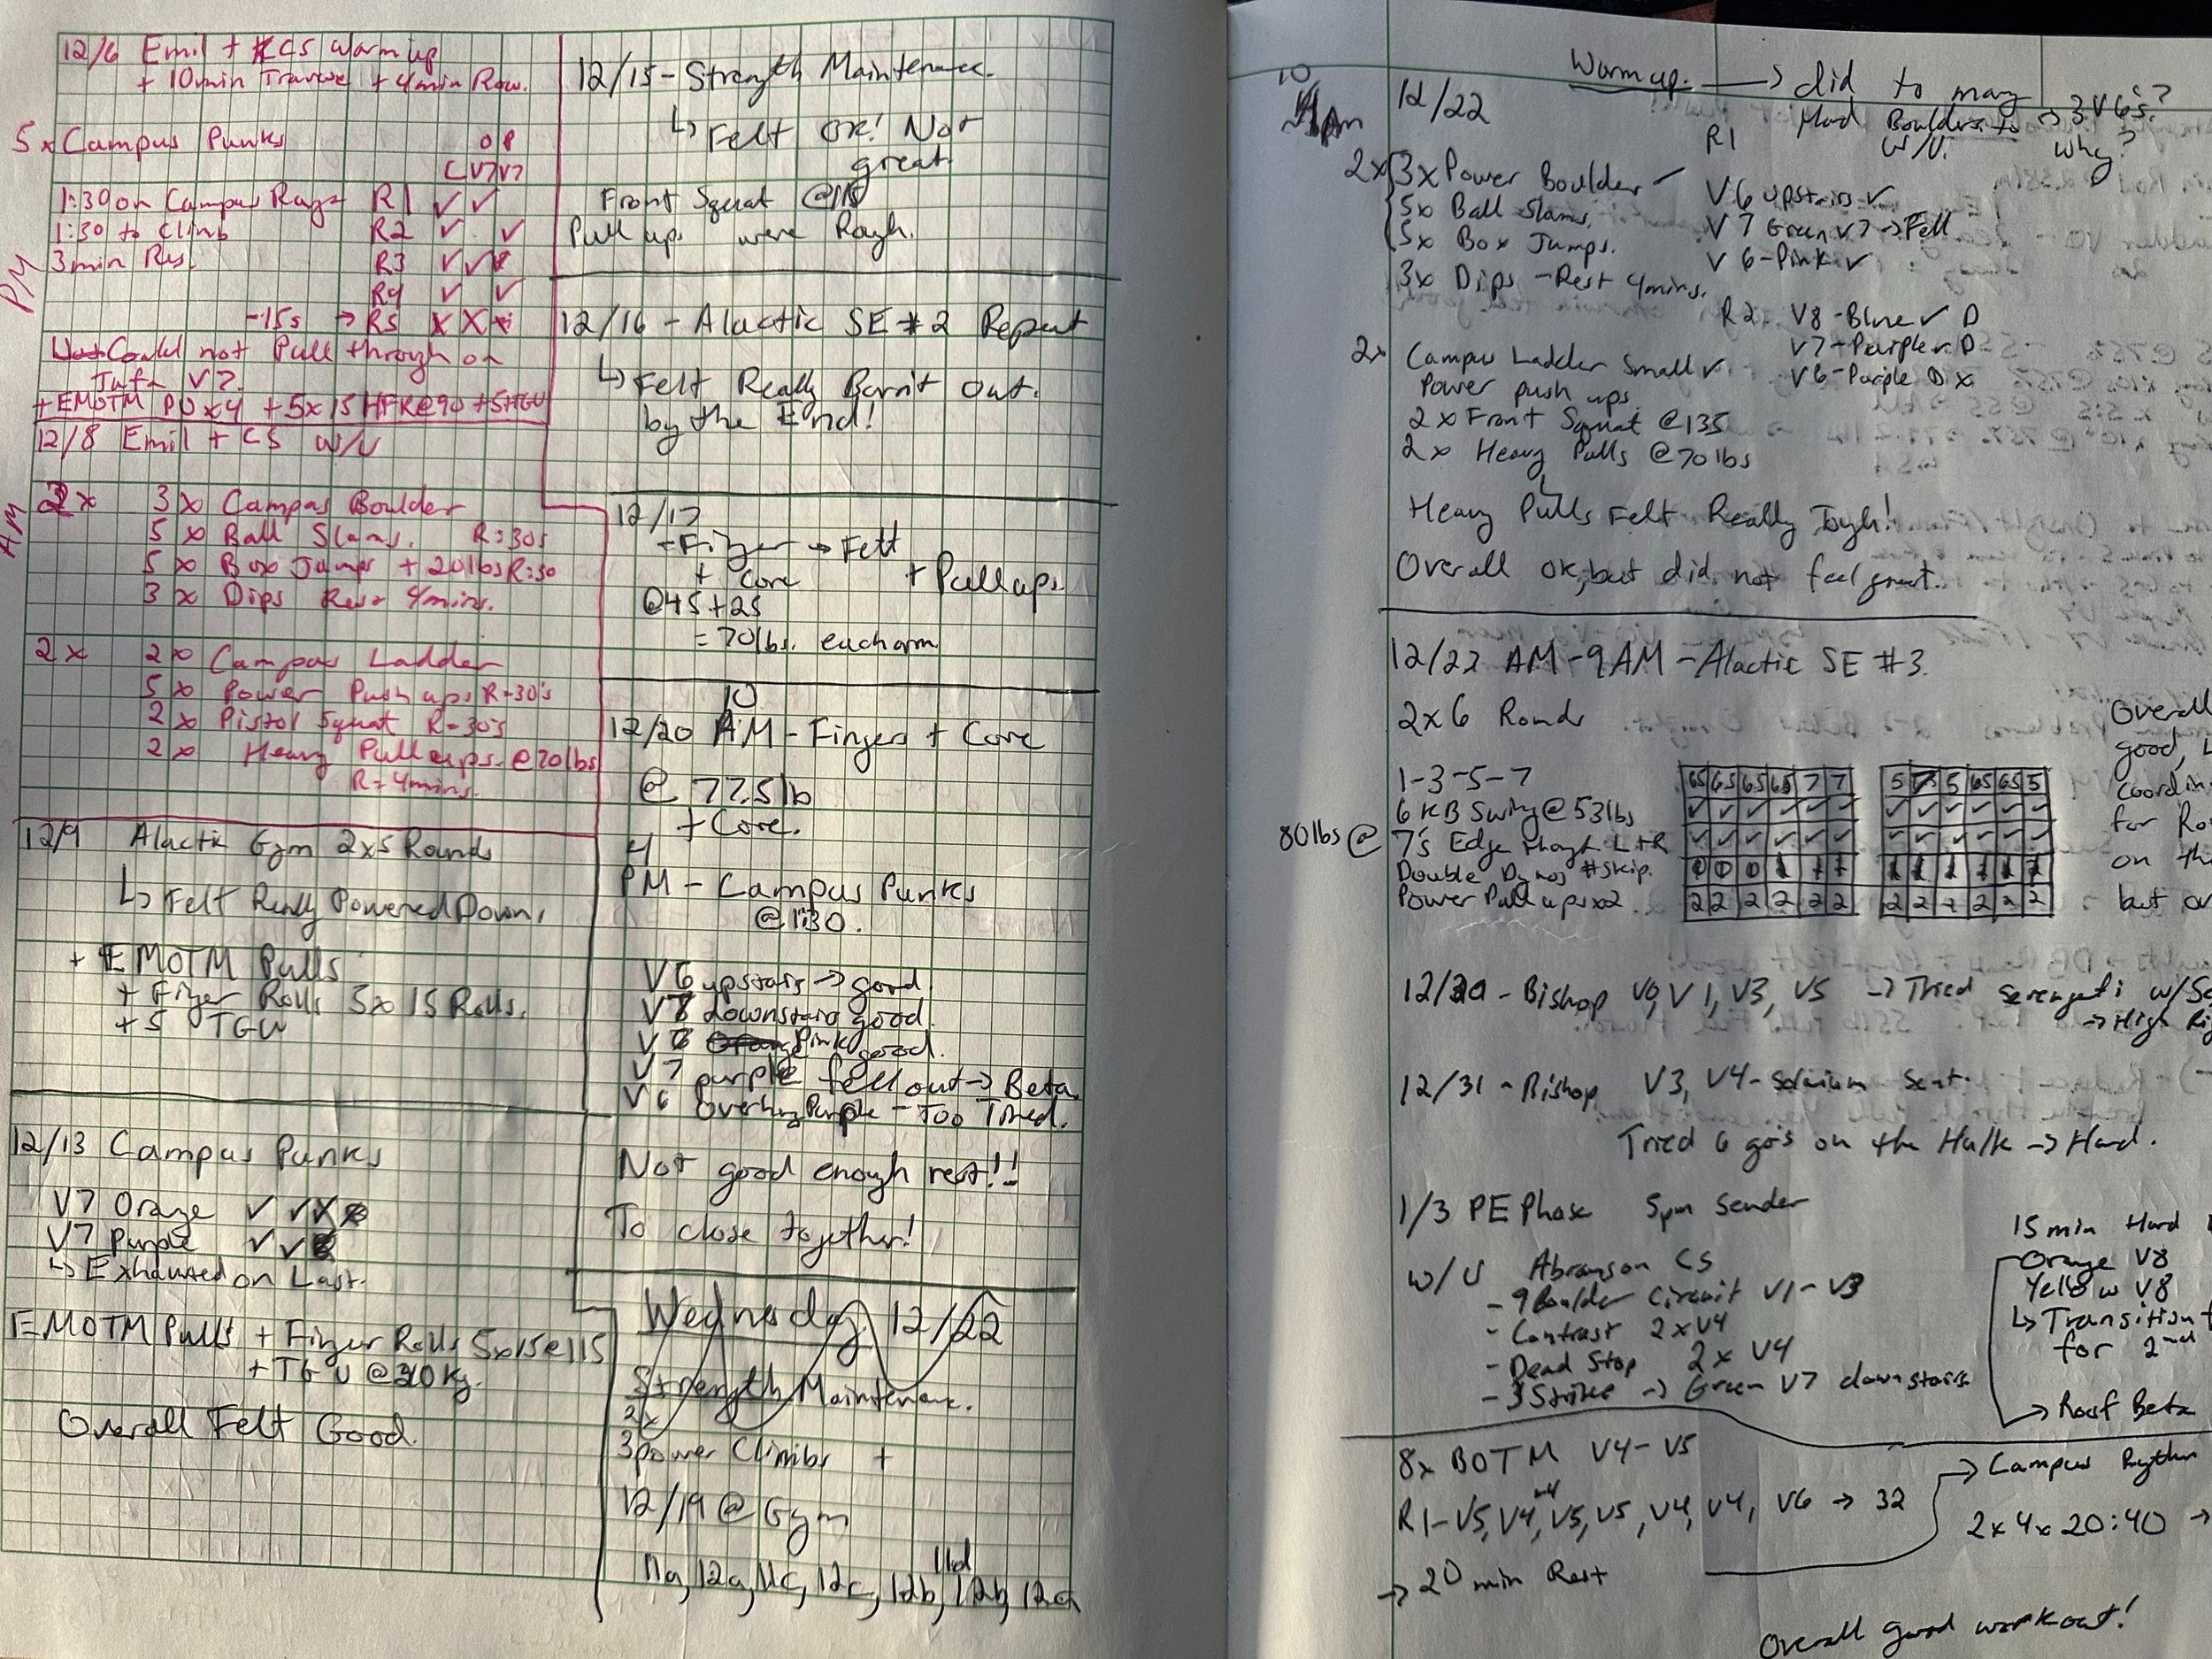 12/6 Emil + CS warm up
+ 10min Traverse + 4min Row.
5 x Campus Punks
O P
V7 V7
1:30 on Campus Rungs R1 ✓ ✓
1:30 to Climb R2 ✓ ✓
3min Res. R3 ✓ ✓
R4 ✓ ✓
PM
-15s → R5 X X
Could not Pull through on
Tufa V7.
+ EMOTM PU x4 + 5x15 HFR@90 + 5HGU
12/8 Emil + CS W/U
AM
2x 3x Campus Boulder
5 x Ball Slams. R=30s
5 x Box Jumps + 20lbs R=30
3 x Dips Rest 4mins.
2x 2x Campus Ladder
5 x Power Push ups R=30's
2 x Pistol Squat R=30's
2 x Heavy Pull ups. @70lbs
R=4mins.
12/9 Alactic Gym 2x5 Rounds
↳ Felt Really Powered Down,
+ EMOTM Pulls
+ Finger Rolls 5x15 Rolls.
+ 5 TGU
12/13 Campus Punks
V7 Orange ✓ ✓ X
V7 Purple ✓ ✓
↳ Exhausted on Last.
EMOTM Pulls + Finger Rolls 5x15@115
+ TGU @ Kg.
Overall Felt Good.
12/15 - Strength Maintenance.
↳ Felt OK! Not
great
Front Squat @115
Pull ups were Rough.
12/16 - Alactic SE #2 Repeat
↳ Felt Really Burnt Out.
by the End!
12/17
- Finger → Felt
+ Core + Pull ups.
@45+25
= 70lbs. each arm
10
12/20 AM - Fingers + Core
@ 77.5lb
+ Core.
4
PM - Campus Punks
@1:30.
V6 upstairs → good.
V8 downstairs good.
V6 Pink good.
V7 purple fell out → Beta
V6 Overhung Purple - Too Tired.
Not good enough rest!!
To close together!
Wednesday 12/22
Strength Maintenance.
2x
3 power Climbs +
12/19 @ Gym
11d
11a, 12a, 11c, 12c, 12b, 12b, 12a
10
Am
12/22
Warm up. → did to many
Hard Boulders to → 3 V6's?
W/U. why?
R1
2x 3x Power Boulder ✓ V6 upstairs ✓
5x Ball Slams. V7 Green V7 → Fell
5x Box Jumps. V6 - Pink ✓
3x Dips - Rest 4mins.
R2 V8 - Blue ✓ D
V7 - Purple ✓ D
V6 - Purple D x
2x Campus Ladder Small ✓
Power push ups
2 x Front Squat @135
2x Heavy Pulls @70lbs
Heavy Pulls Felt Really Tough!
Overall ok, but did not feel great.
12/22 AM - 9AM - Alactic SE #3.
2x6 Rounds
1-3-5-7 65 65 65 65 7 7 5 5 65 65 5
6 KB Swing @53lbs ✓ ✓ ✓ ✓ ✓ ✓ ✓ ✓ ✓ ✓ ✓ ✓
80lbs @ 7's Edge L+R ✓ ✓ ✓ ✓ ✓ ✓ ✓ ✓ ✓ ✓ ✓ ✓
Double Dynos #skip.
Power Pull ups x2 2 2 2 2 2 2 2 2 2 2 2 2
Overall
good,
coordin
for Ro
on th
but ov
12/30 - Bishop V0, V1, V3, V5 → Tried Serengeti w/
→ High
12/31 - Bishop V3, V4 - Solarium Sent.
Tried 6 go's on the Hulk → Hard.
1/3 PE Phase 5pm Sender
W/U Abramson CS
- 9 Boulder Circuit V1-V3
- Contrast 2xV4
- Dead Stop 2x V4
- 3 Strike → Green V7 downstairs
15 min Hard
Orange V8
Yellow V8
↳ Transition
for 2nd
→ Roof Beta
8x BOTM V4-V5
R1 - V5, V4, V5, V5, V4, V4, V6 → 32
→ 20 min Rest
→ Campus Rythm
2x4x20:40 →
Overall good workout!